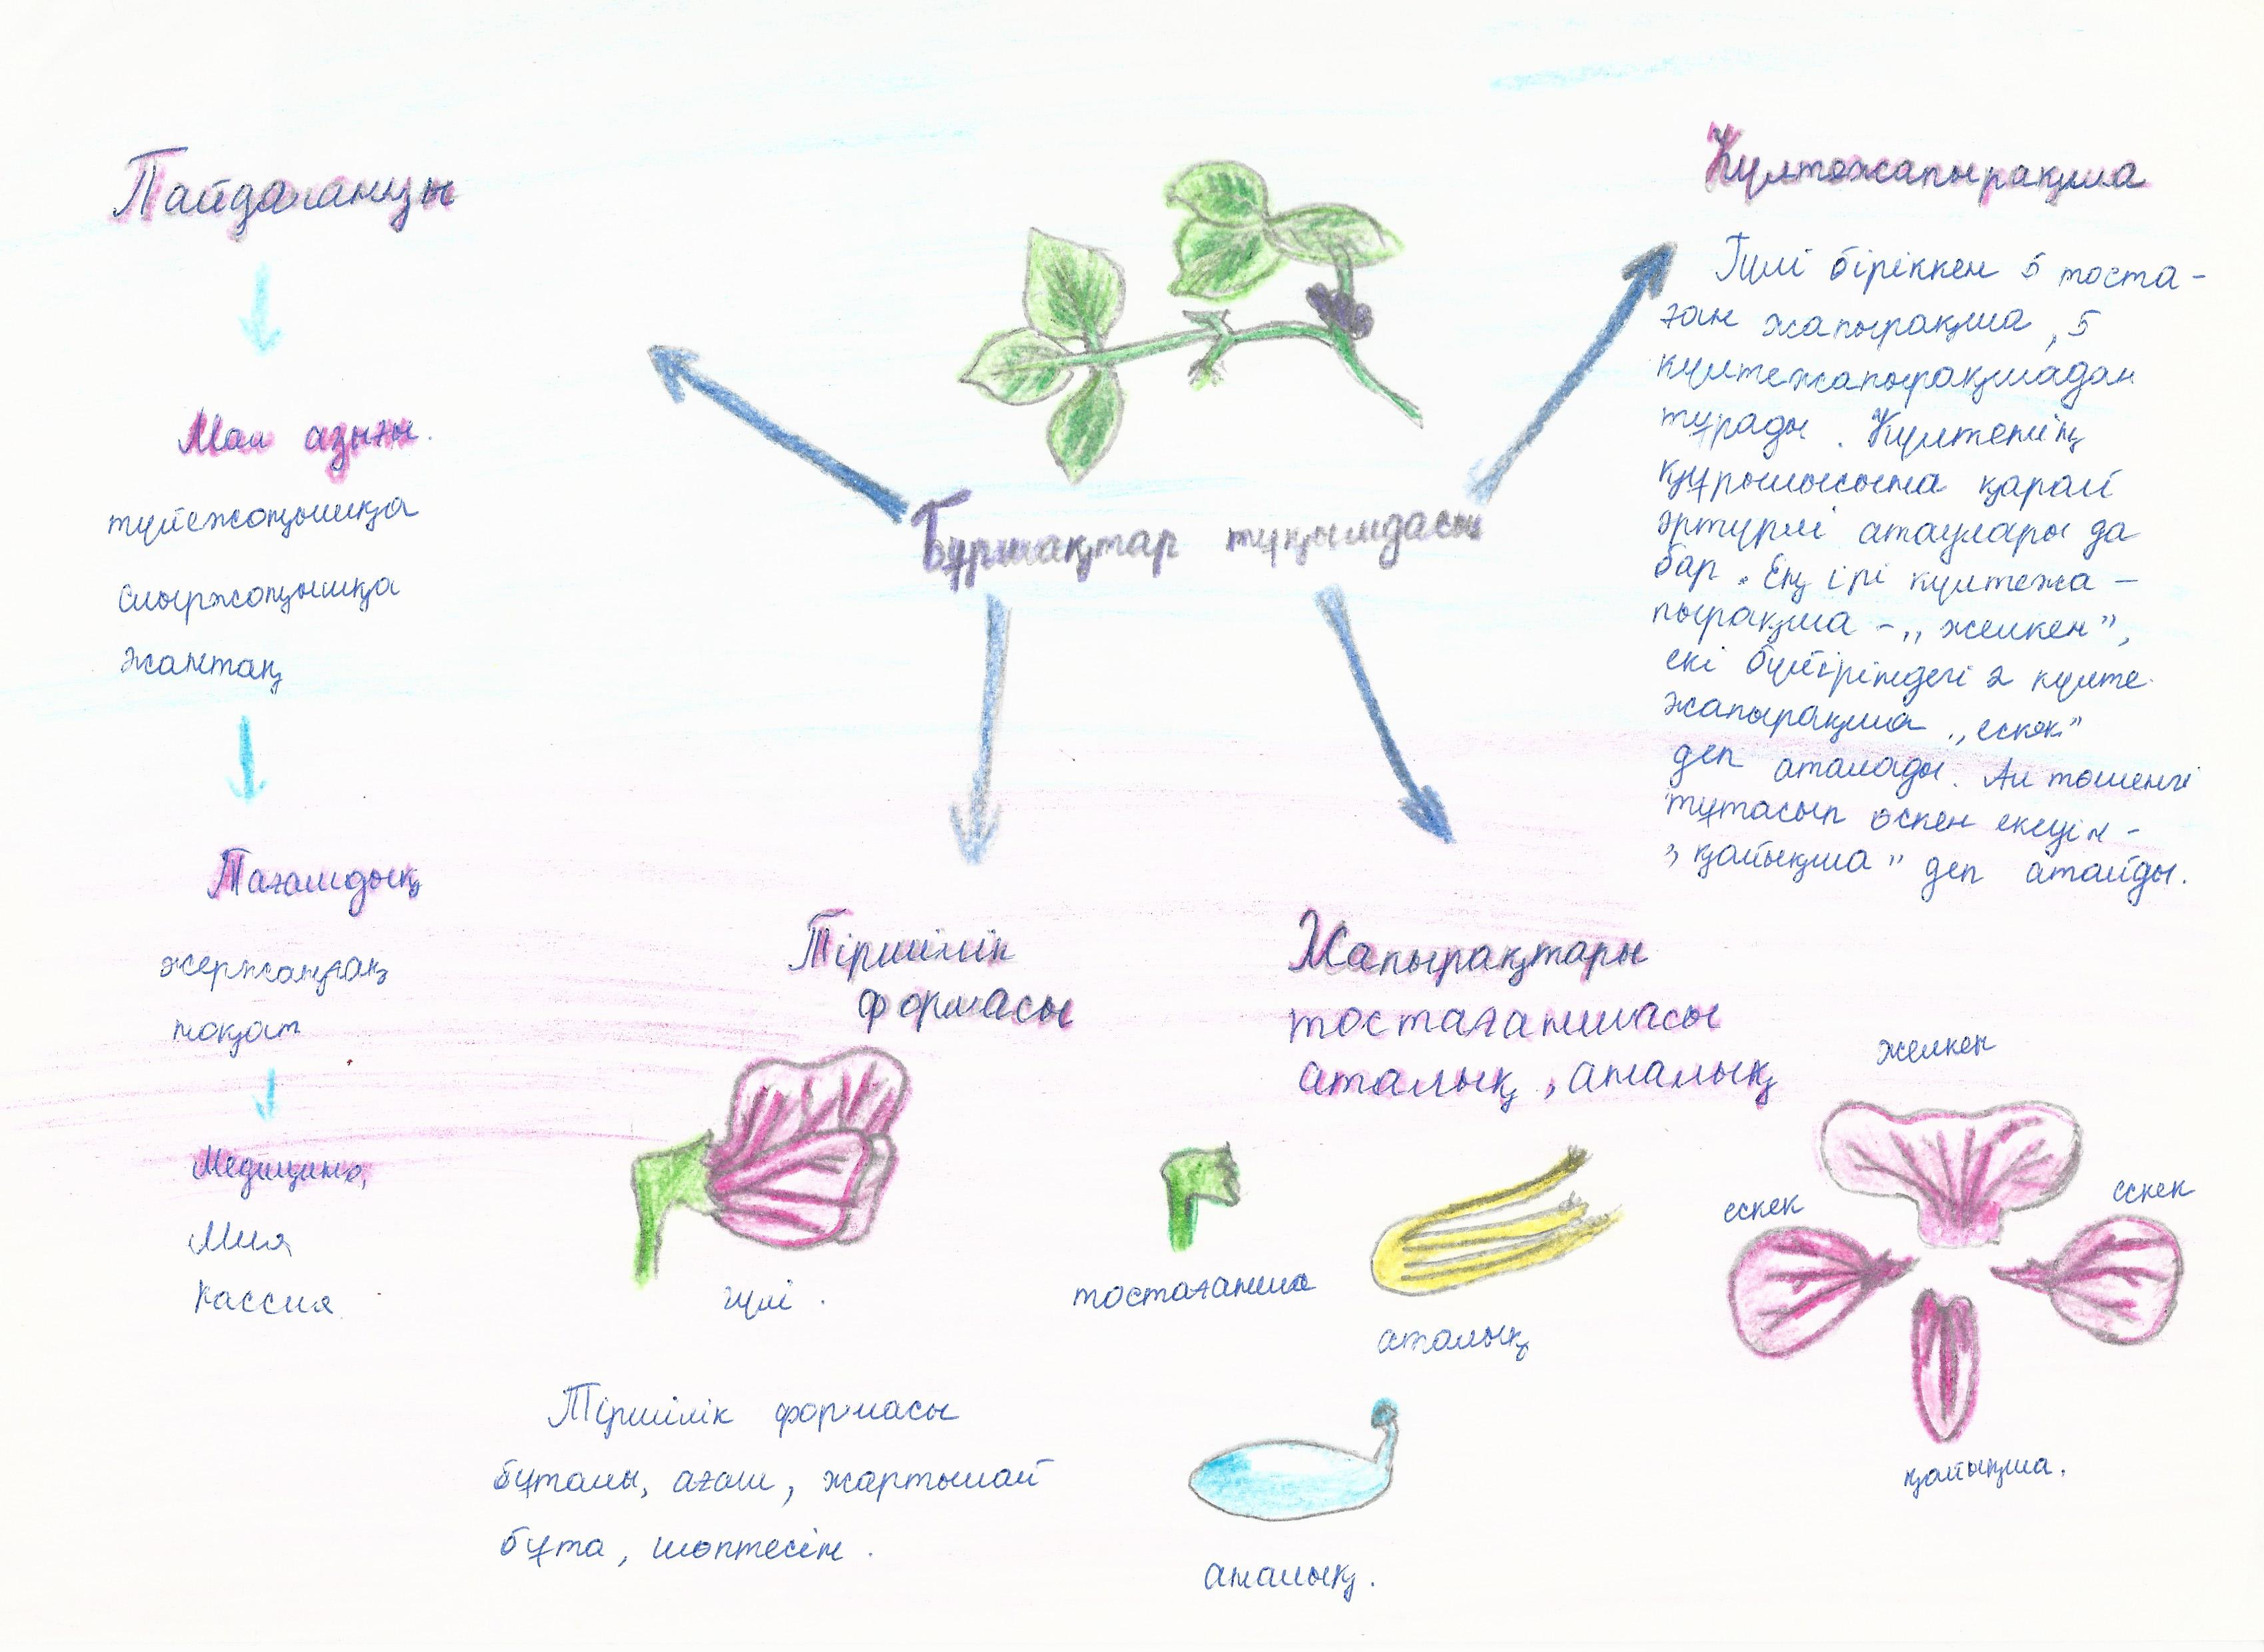 Пайдалануы
Мал азығы.
түйежоңышқа
сиыржоңышқа
жантақ
Тағамдық
жержаңғақ
ноқат
Медицина,
Мия
Кассия
Бұршақтар тұқымдасы
Тіршілік
формасы
гүлі.
Тіршілік формасы
бұталы, ағаш, жартылай
бұта, шөптесін.
Жапырақтары
тостағаншасы
аталық, аналық
тостағанша
аталық
аналық.
Күлтежапырақша
Гүлі біріккен 5 тоста-
ған жапырақша, 5
күлтежапырақшадан
тұрады. Күлтенің
құрылысына қарай
әртүрлі атаулары да
бар. Ең ірі күлтежа-
пырақша - „желкен”,
екі бүйіріндегі 2 күлте
жапырақша „ескек”
деп аталады. Ал төменгі
тұтасып өскен екеуін -
„қайықша” деп атайды.
желкен
ескек
ескек
қайықша.